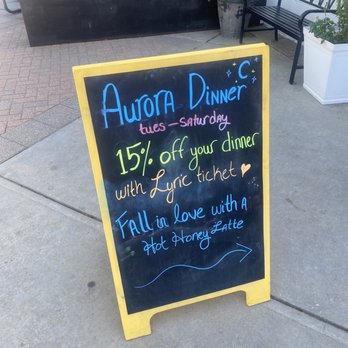 Aurora Dinner
tues-Saturday
15% off your dinner
with Lyric ticket
Fall in love with a
Hot Honey Latte